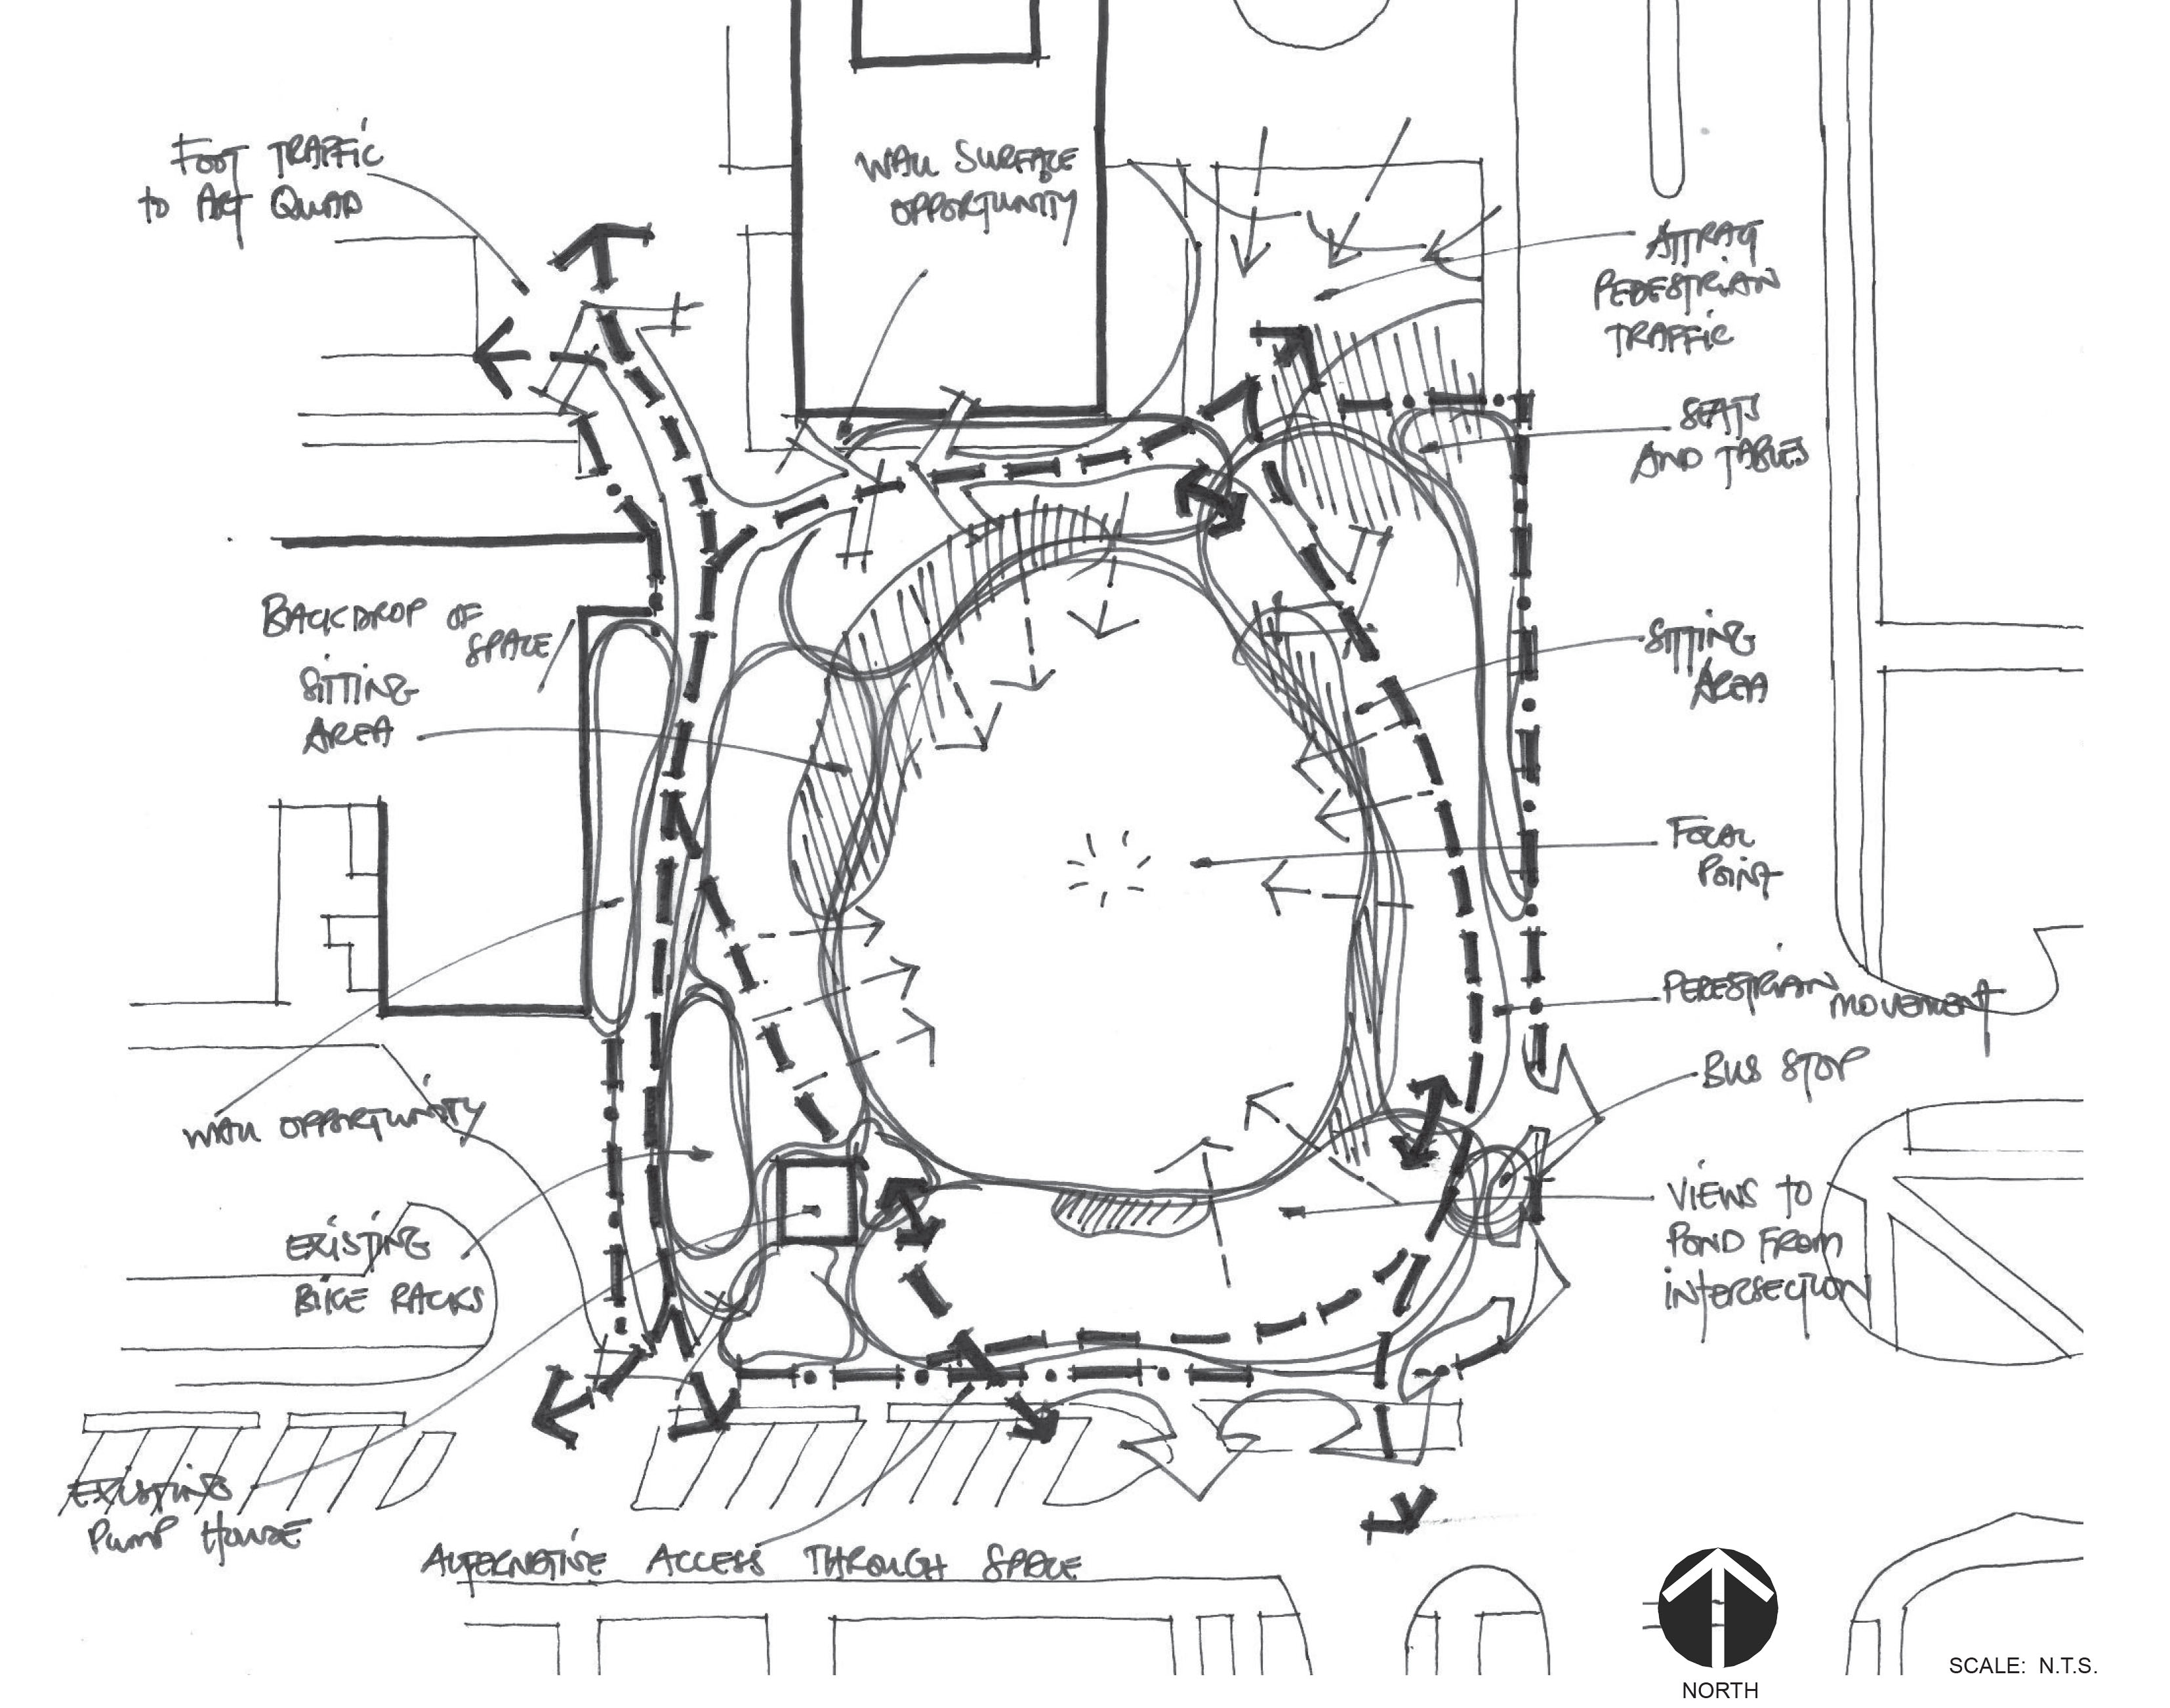 FOOT TRAFFIC
to ART QUAD
WALL SURFACE
OPPORTUNITY
ATTRACT
PEDESTRIAN
TRAFFIC
SEATS
AND TABLES
BACKDROP OF
SPACE
SITTING
AREA
SITTING
AREA
FOCAL
POINT
PEDESTRIAN MOVEMENT
BUS STOP
WALL OPPORTUNITY
VIEWS TO
POND FROM
INTERSECTION
EXISTING
BIKE RACKS
EXISTING
PUMP HOUSE
ALTERNATIVE ACCESS THROUGH SPACE
NORTH
SCALE: N.T.S.